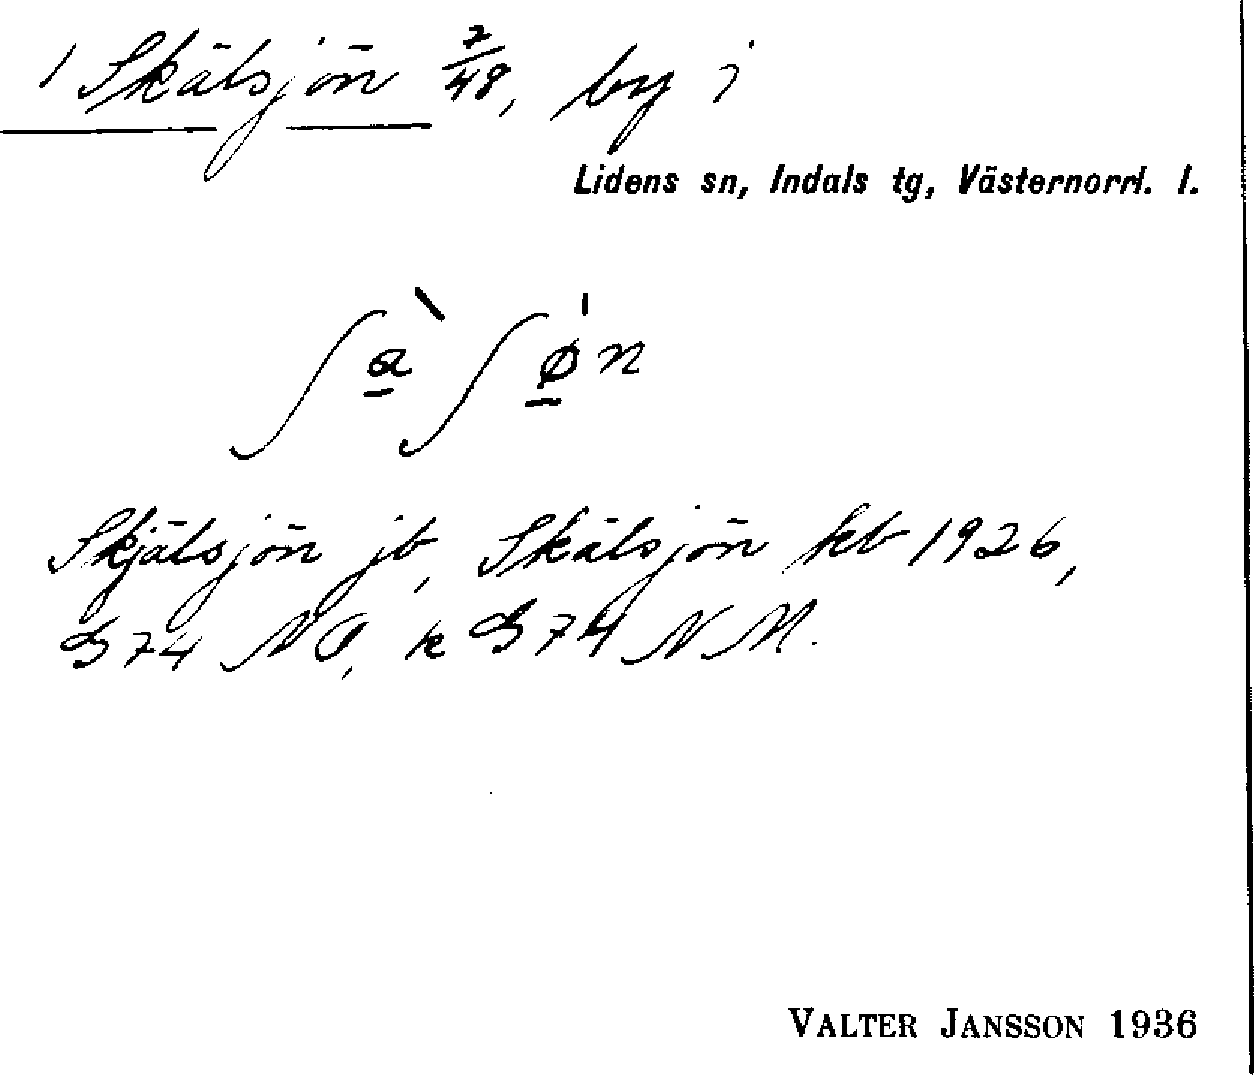 1 Skälsjön 7/48, by i
Lidens sn, Indals tg, Västernorrl. l.
ʃa̠`ʃø̠ˈn
Skjälsjön jb, Skälsjön kb 1926,
S 74 NO, k S 74 NM.
VALTER JANSSON 1936